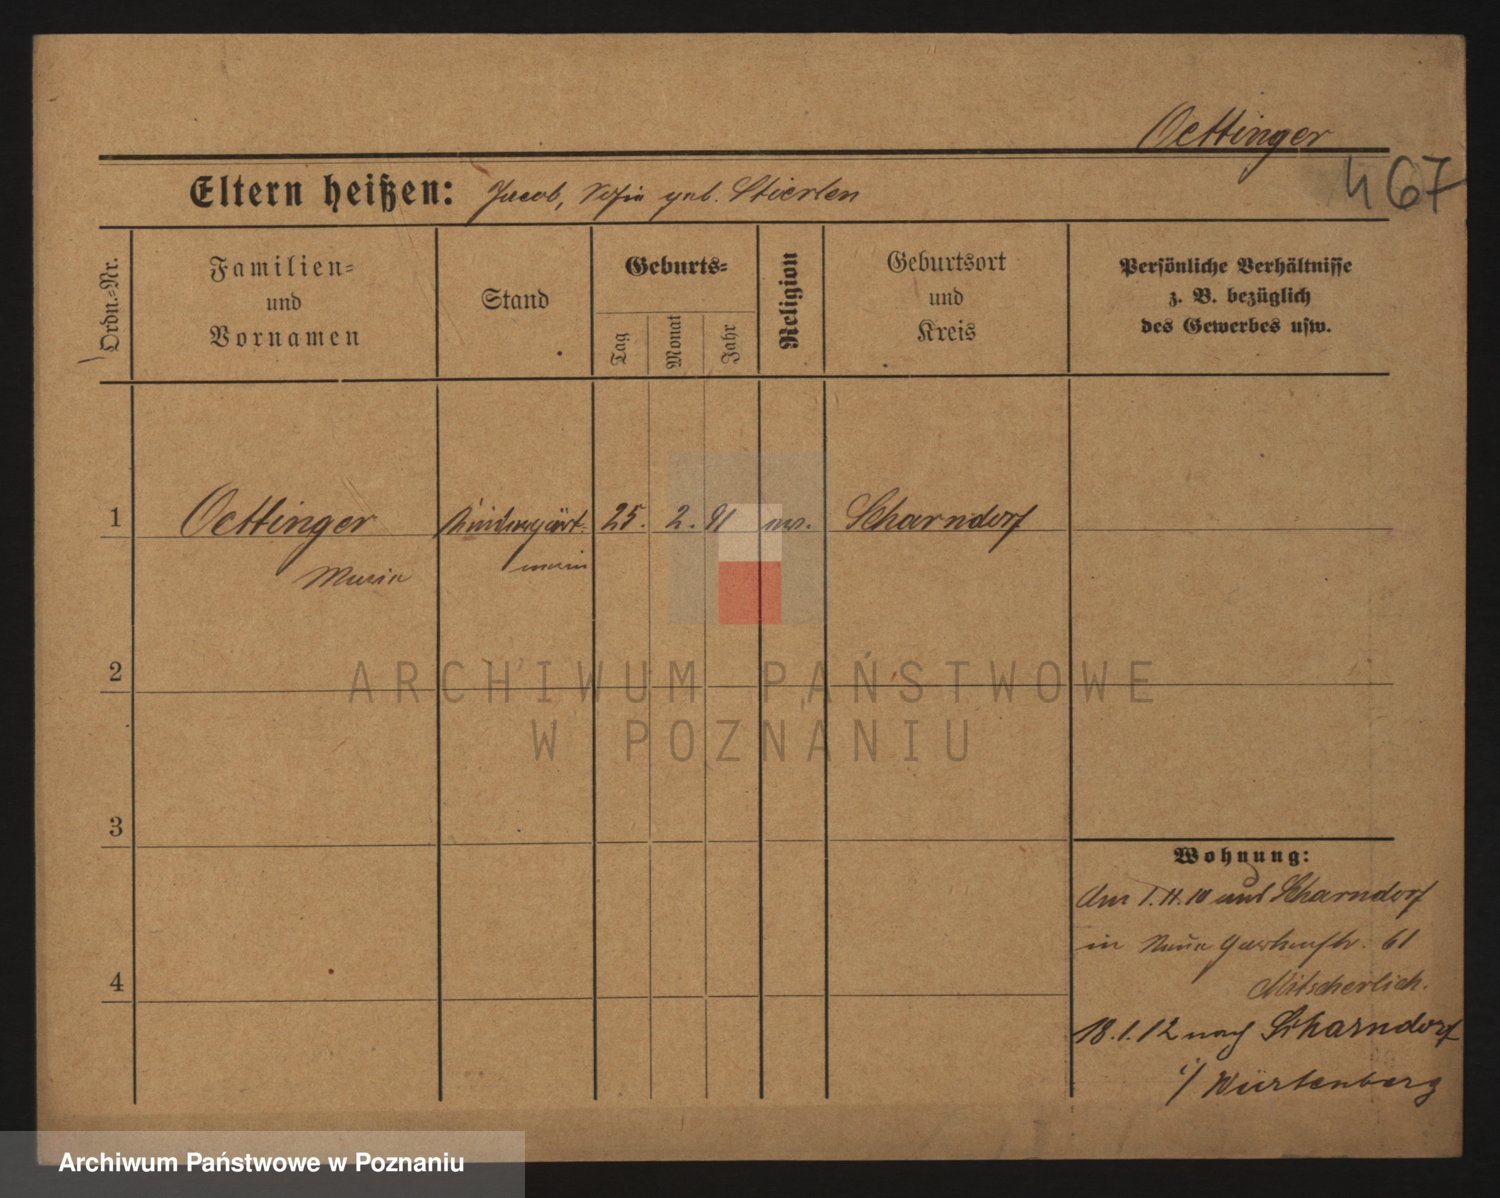 Oettinger
467
Eltern heißen: Jacob, Sofie geb. Stierlen
Ordn.-Nr.
Familien-
und
Vornamen
Stand
Geburts-
Tag
Monat
Jahr
Religion
Geburtsort
und
Kreis
Persönliche Verhältnisse
z. B. bezüglich
des Gewerbes usw.
1 Oettinger Kindergärt- 25. 2. 91 ev. Scharndorf
Maria nerin
2
3
4
Wohnung:
Am 1.11.10 aus Scharndorf
in Neue Gartenstr. 61
Mitscherlich.
18.1.12 nach Scharndorf
i/ Würtenberg
ARCHIWUM PAŃSTWOWE
W POZNANIU
Archiwum Państwowe w Poznaniu